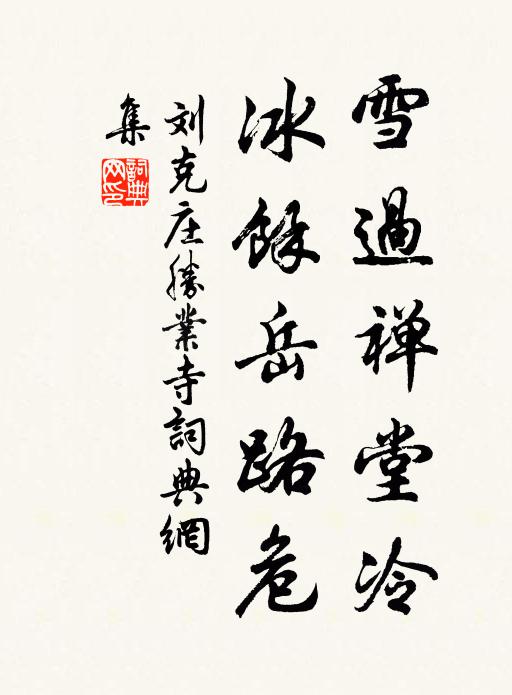 雪過禅堂冷
冰餘岳路危
刘克庄勝業寺詞典網
集
詞典
网印